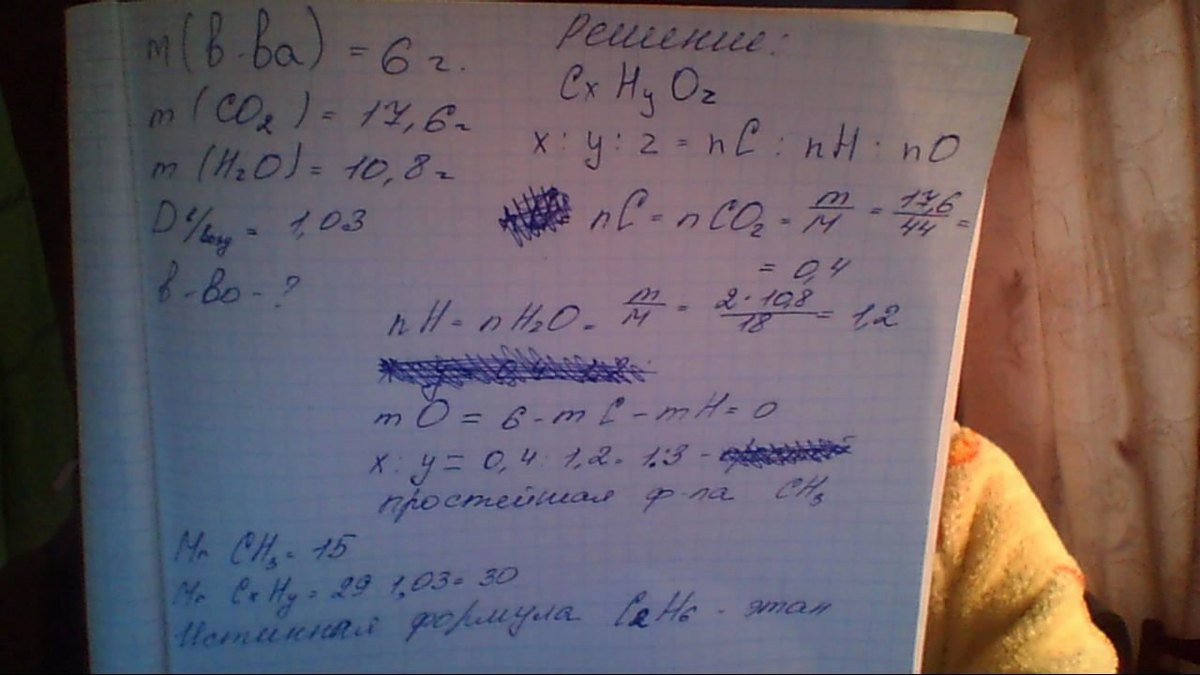 m(в-ва) = 6 г.
m(CO2) = 17,6 г
m(H2O) = 10,8 г
D г/возд = 1,03
в-во - ?
Решение:
CxHyOz
x : y : z = nC : nH : nO
nC = nCO2 = m/M = 17,6/44 =
= 0,4
nH = nH2O = m/M = 2·10,8/18 = 1,2
mO = 6 - mC - mH = 0
x : y = 0,4 : 1,2 = 1:3 -
простейшая ф-ла CH3
Mr CH3 = 15
Mr CxHy = 29 · 1,03 = 30
Истинная формула C2H6 - этан